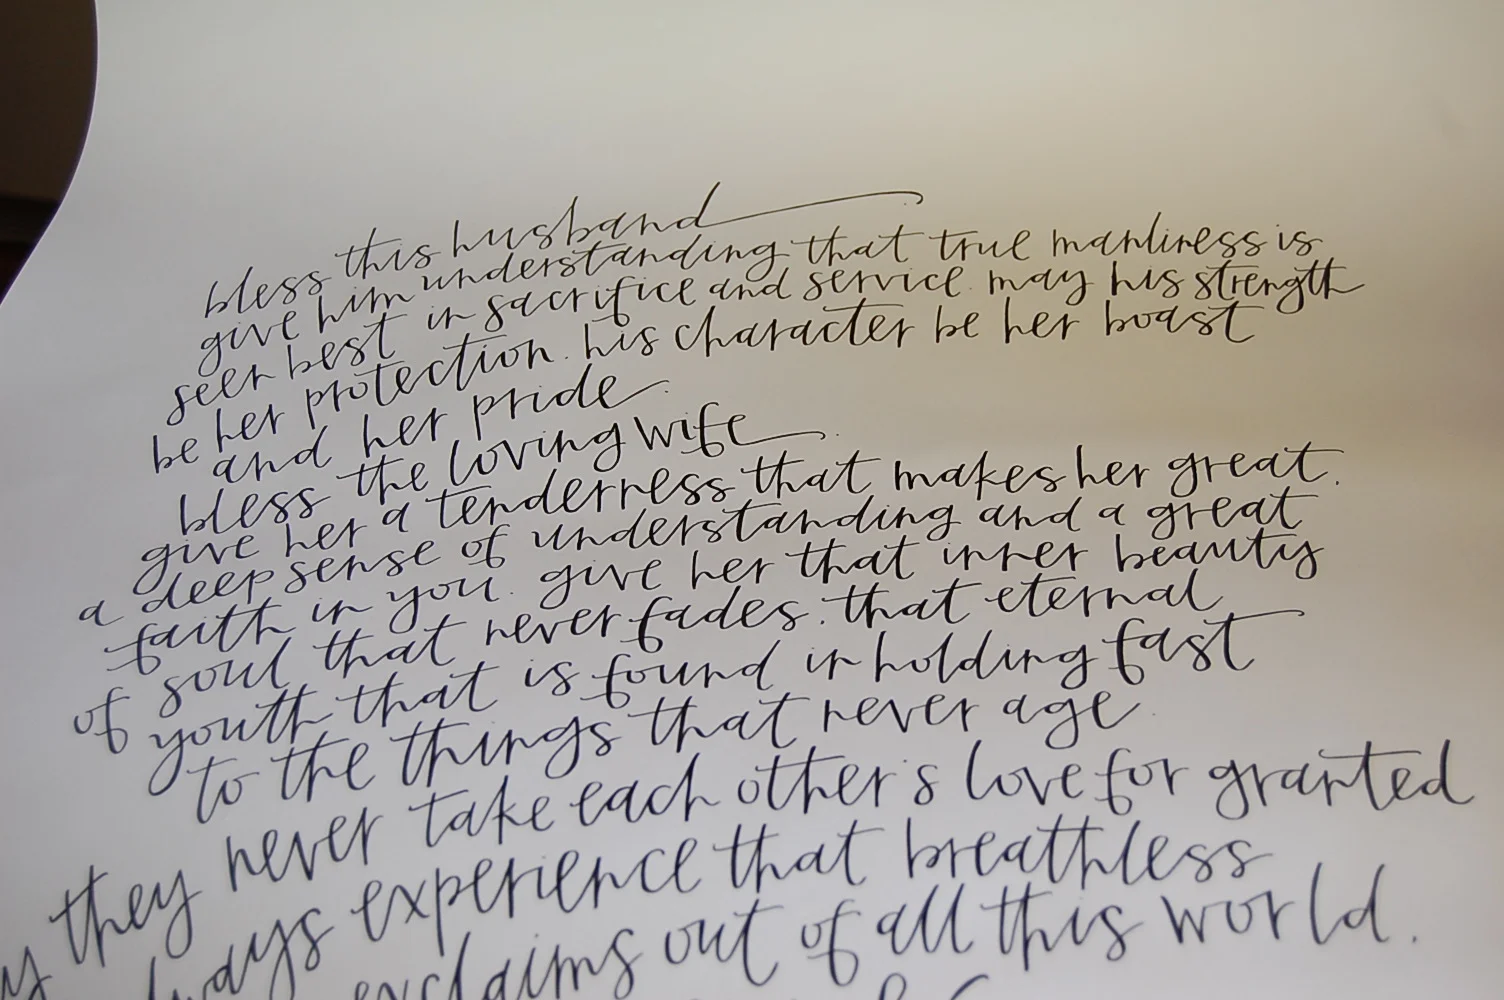 bless this husband
give him understanding that true manliness is
seen best in sacrifice and service. may his strength
be her protection. his character be her boast
and her pride.
bless the loving wife.
give her a tenderness that makes her great.
a deep sense of understanding and a great
faith in you. give her that inner beauty
of soul that never fades. that eternal
youth that is found in holding fast
to the things that never age.
they never take each other's love for granted
experience that breathless
exclaims out of all this world.